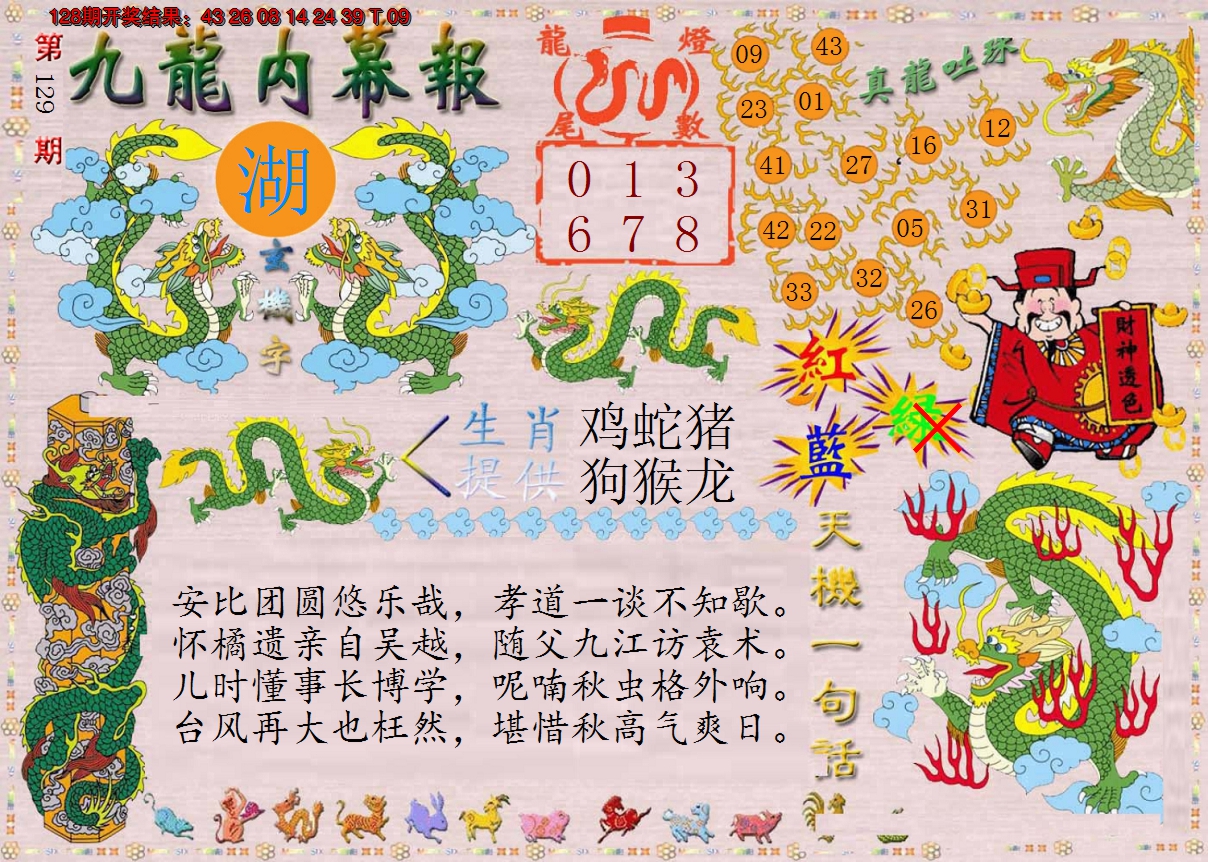 128期开奖结果：43 26 06 14 24 39 T 09
第129期
九龍内幕報
湖
玄機字
龍燈
尾數
0 1 3
6 7 8
真龍吐珠
09
43
23
01
12
16
41
27
31
42
22
05
33
32
26
紅
綠
藍
財神透色
生肖
提供
鸡蛇猪
狗猴龙
天機一句话
安比团圆悠乐哉，孝道一谈不知歇。
怀橘遗亲自吴越，随父九江访袁术。
儿时懂事长博学，呢喃秋虫格外响。
台风再大也枉然，堪惜秋高气爽日。